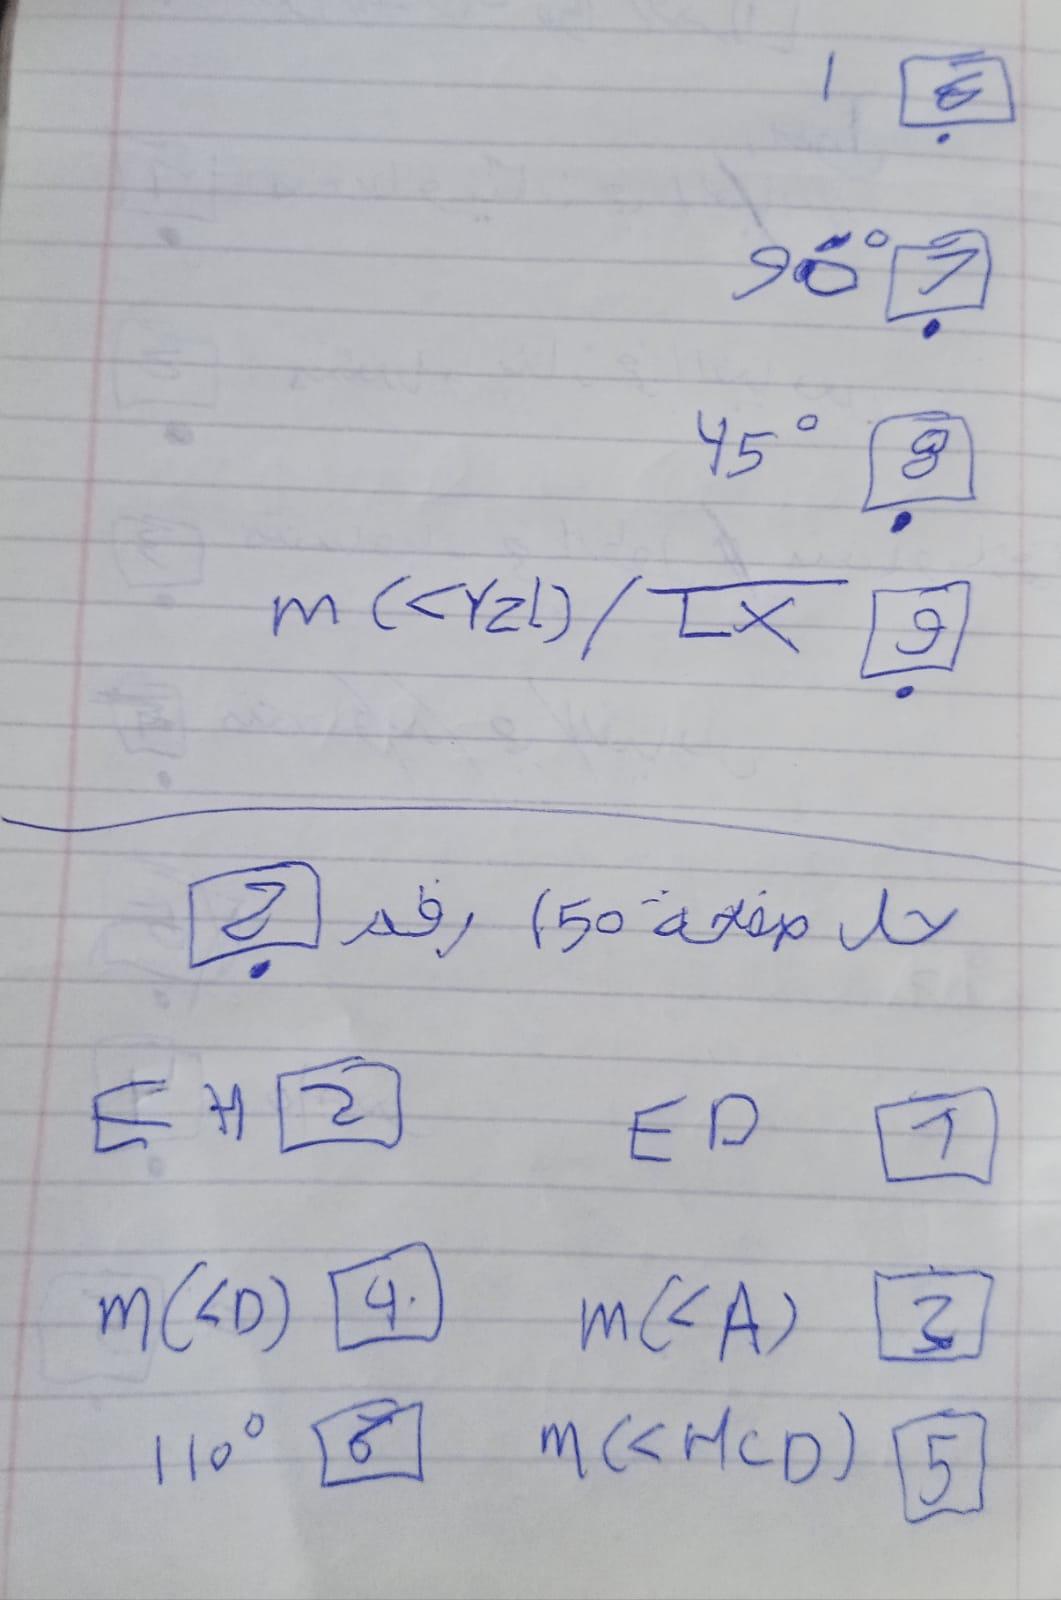 6 1
7 90°
8 45°
9 m(<YZL) / LX
حل صفحة (50) رقم 2
1 ED 2 EH
3 m(<A) 4 m(<D)
5 m(<HCD) 6 110°